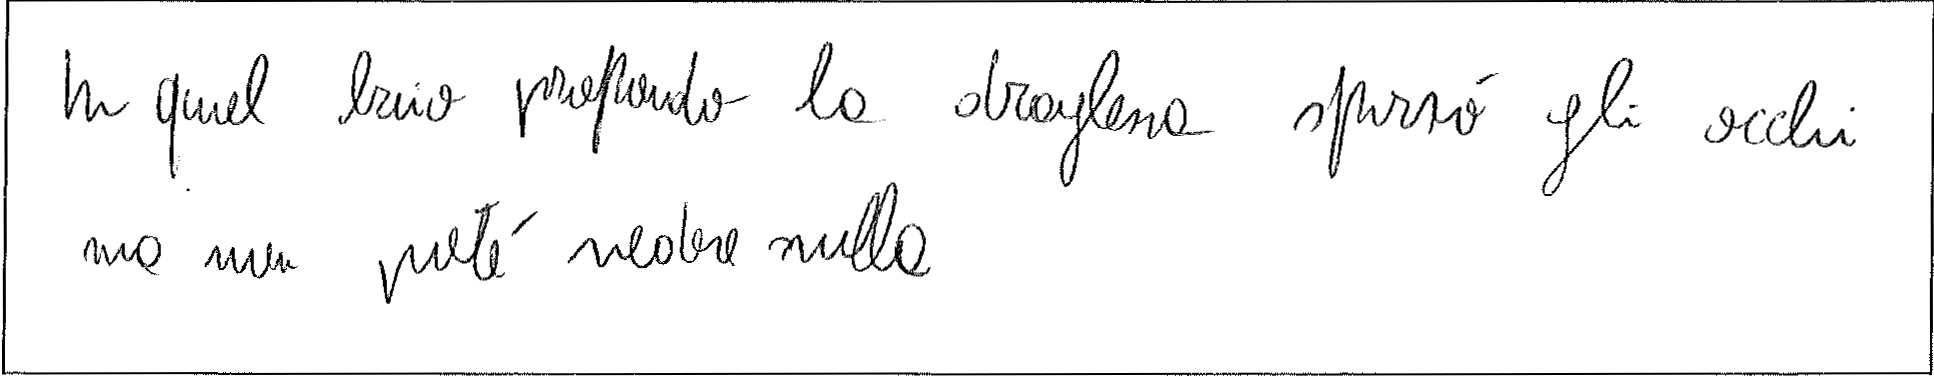 In quel buio profondo la draglena spirsó gli occhi
ma non poté vedere nulla